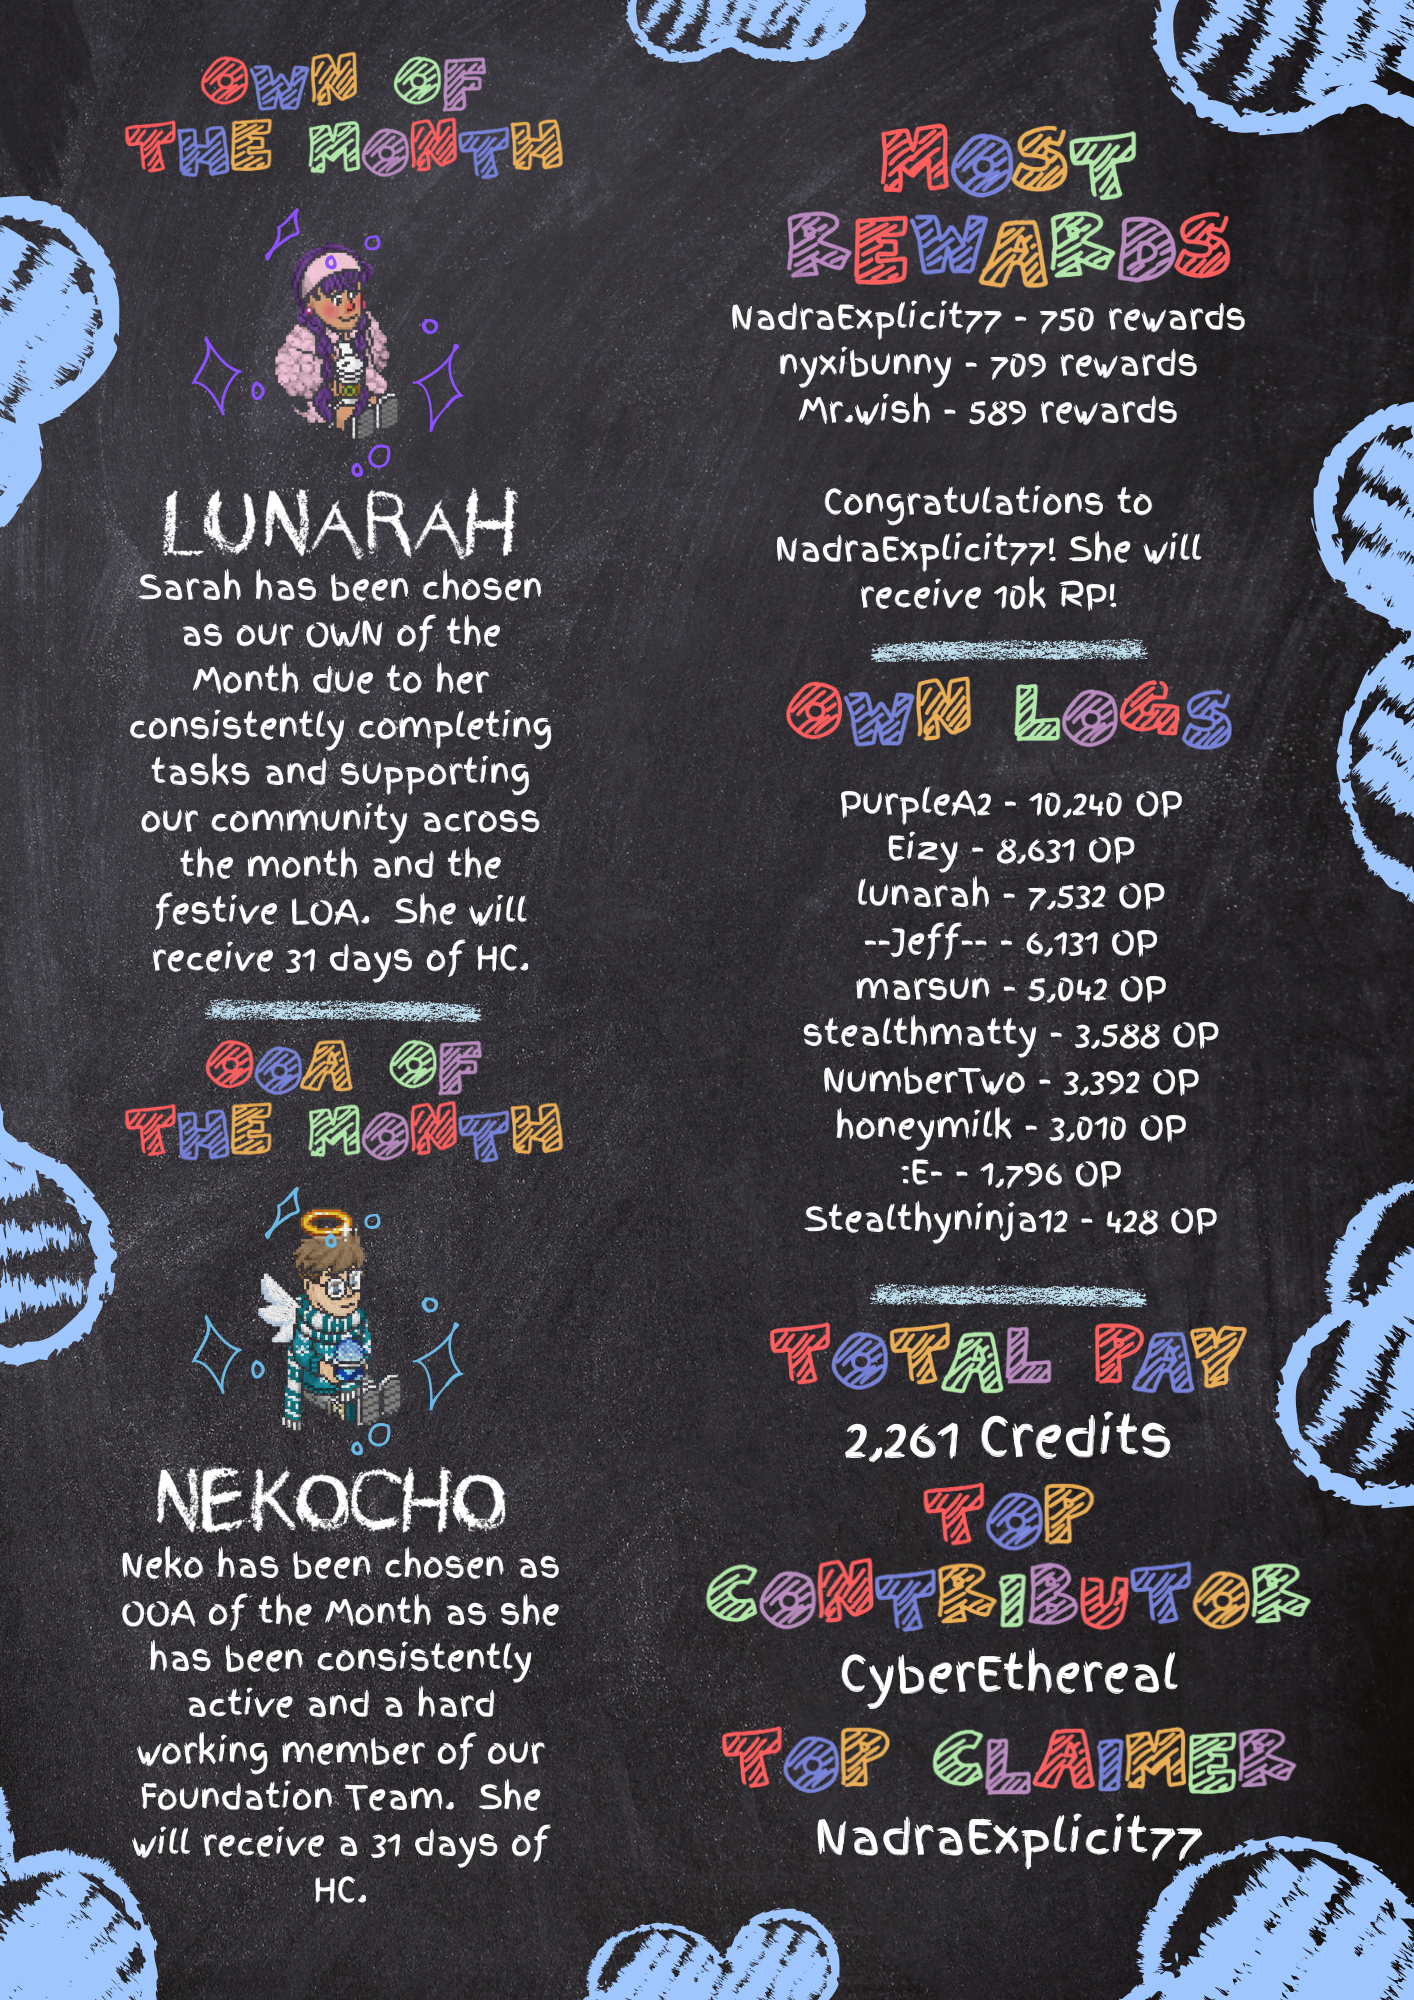 OWN OF
THE MONTH
LUNARAH
Sarah has been chosen
as our OWN of the
Month due to her
consistently completing
tasks and supporting
our community across
the month and the
festive LOA. She will
receive 31 days of HC.
OOA OF
THE MONTH
NEKOCHO
Neko has been chosen as
OOA of the Month as she
has been consistently
active and a hard
working member of our
Foundation Team. She
will receive a 31 days of
HC.
MOST
REWARDS
NadraExplicit77 - 750 rewards
nyxibunny - 709 rewards
Mr.wish - 589 rewards
Congratulations to
NadraExplicit77! She will
receive 10k RP!
OWN LOGS
PurpleA2 - 10,240 OP
Eizy - 8,631 OP
lunarah - 7,532 OP
--Jeff-- - 6,131 OP
marsun - 5,042 OP
stealthmatty - 3,588 OP
NumberTwo - 3,392 OP
honeymilk - 3,010 OP
:E- - 1,796 OP
Stealthyninja12 - 428 OP
TOTAL PAY
2,261 Credits
TOP
CONTRIBUTOR
CyberEthereal
TOP CLAIMER
NadraExplicit77